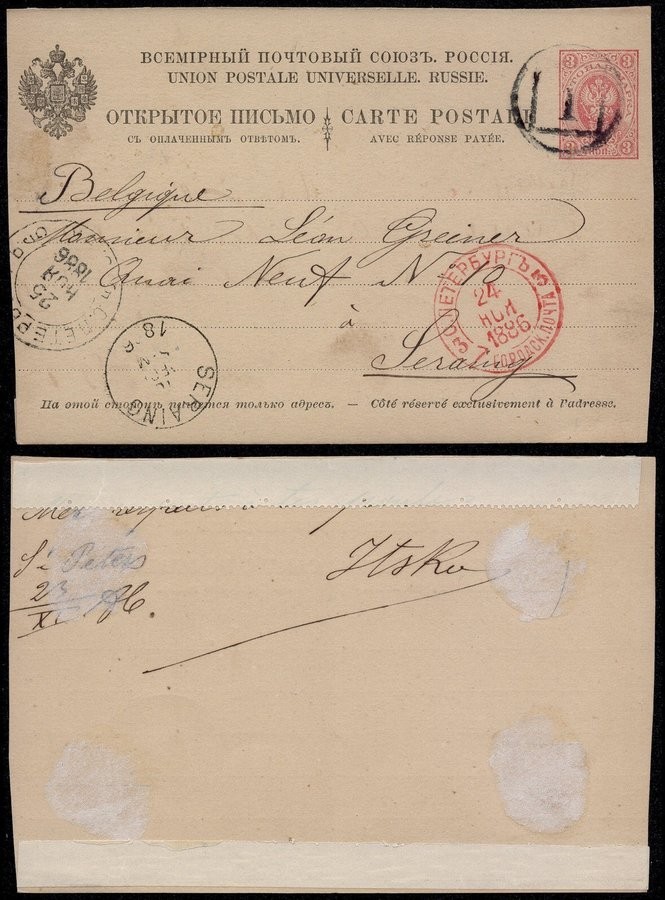 ВСЕМІРНЫЙ ПОЧТОВЫЙ СОЮЗЪ. РОССІЯ.
UNION POSTALE UNIVERSELLE. RUSSIE.
ОТКРЫТОЕ ПИСЬМО
СЪ ОПЛАЧЕННЫМЪ ОТВѢТОМЪ.
CARTE POSTALE
AVEC RÉPONSE PAYÉE.
3 3
3 3
1
Belgique
Monsieur Léon Greiner
Quai Neuf N 10
à
Seraing
С.ПЕТЕРБУРГЪ
24
НОЯ
1886
ГОРОДСК. ПОЧТА
С.ПЕТЕРБ
25
НОЯ
1886
SERAING
18 6
На этой сторонѣ пишется только адресъ. — Côté réservé exclusivement à l'adresse.
Mes
St Peters
23/XI 86.
Itsko